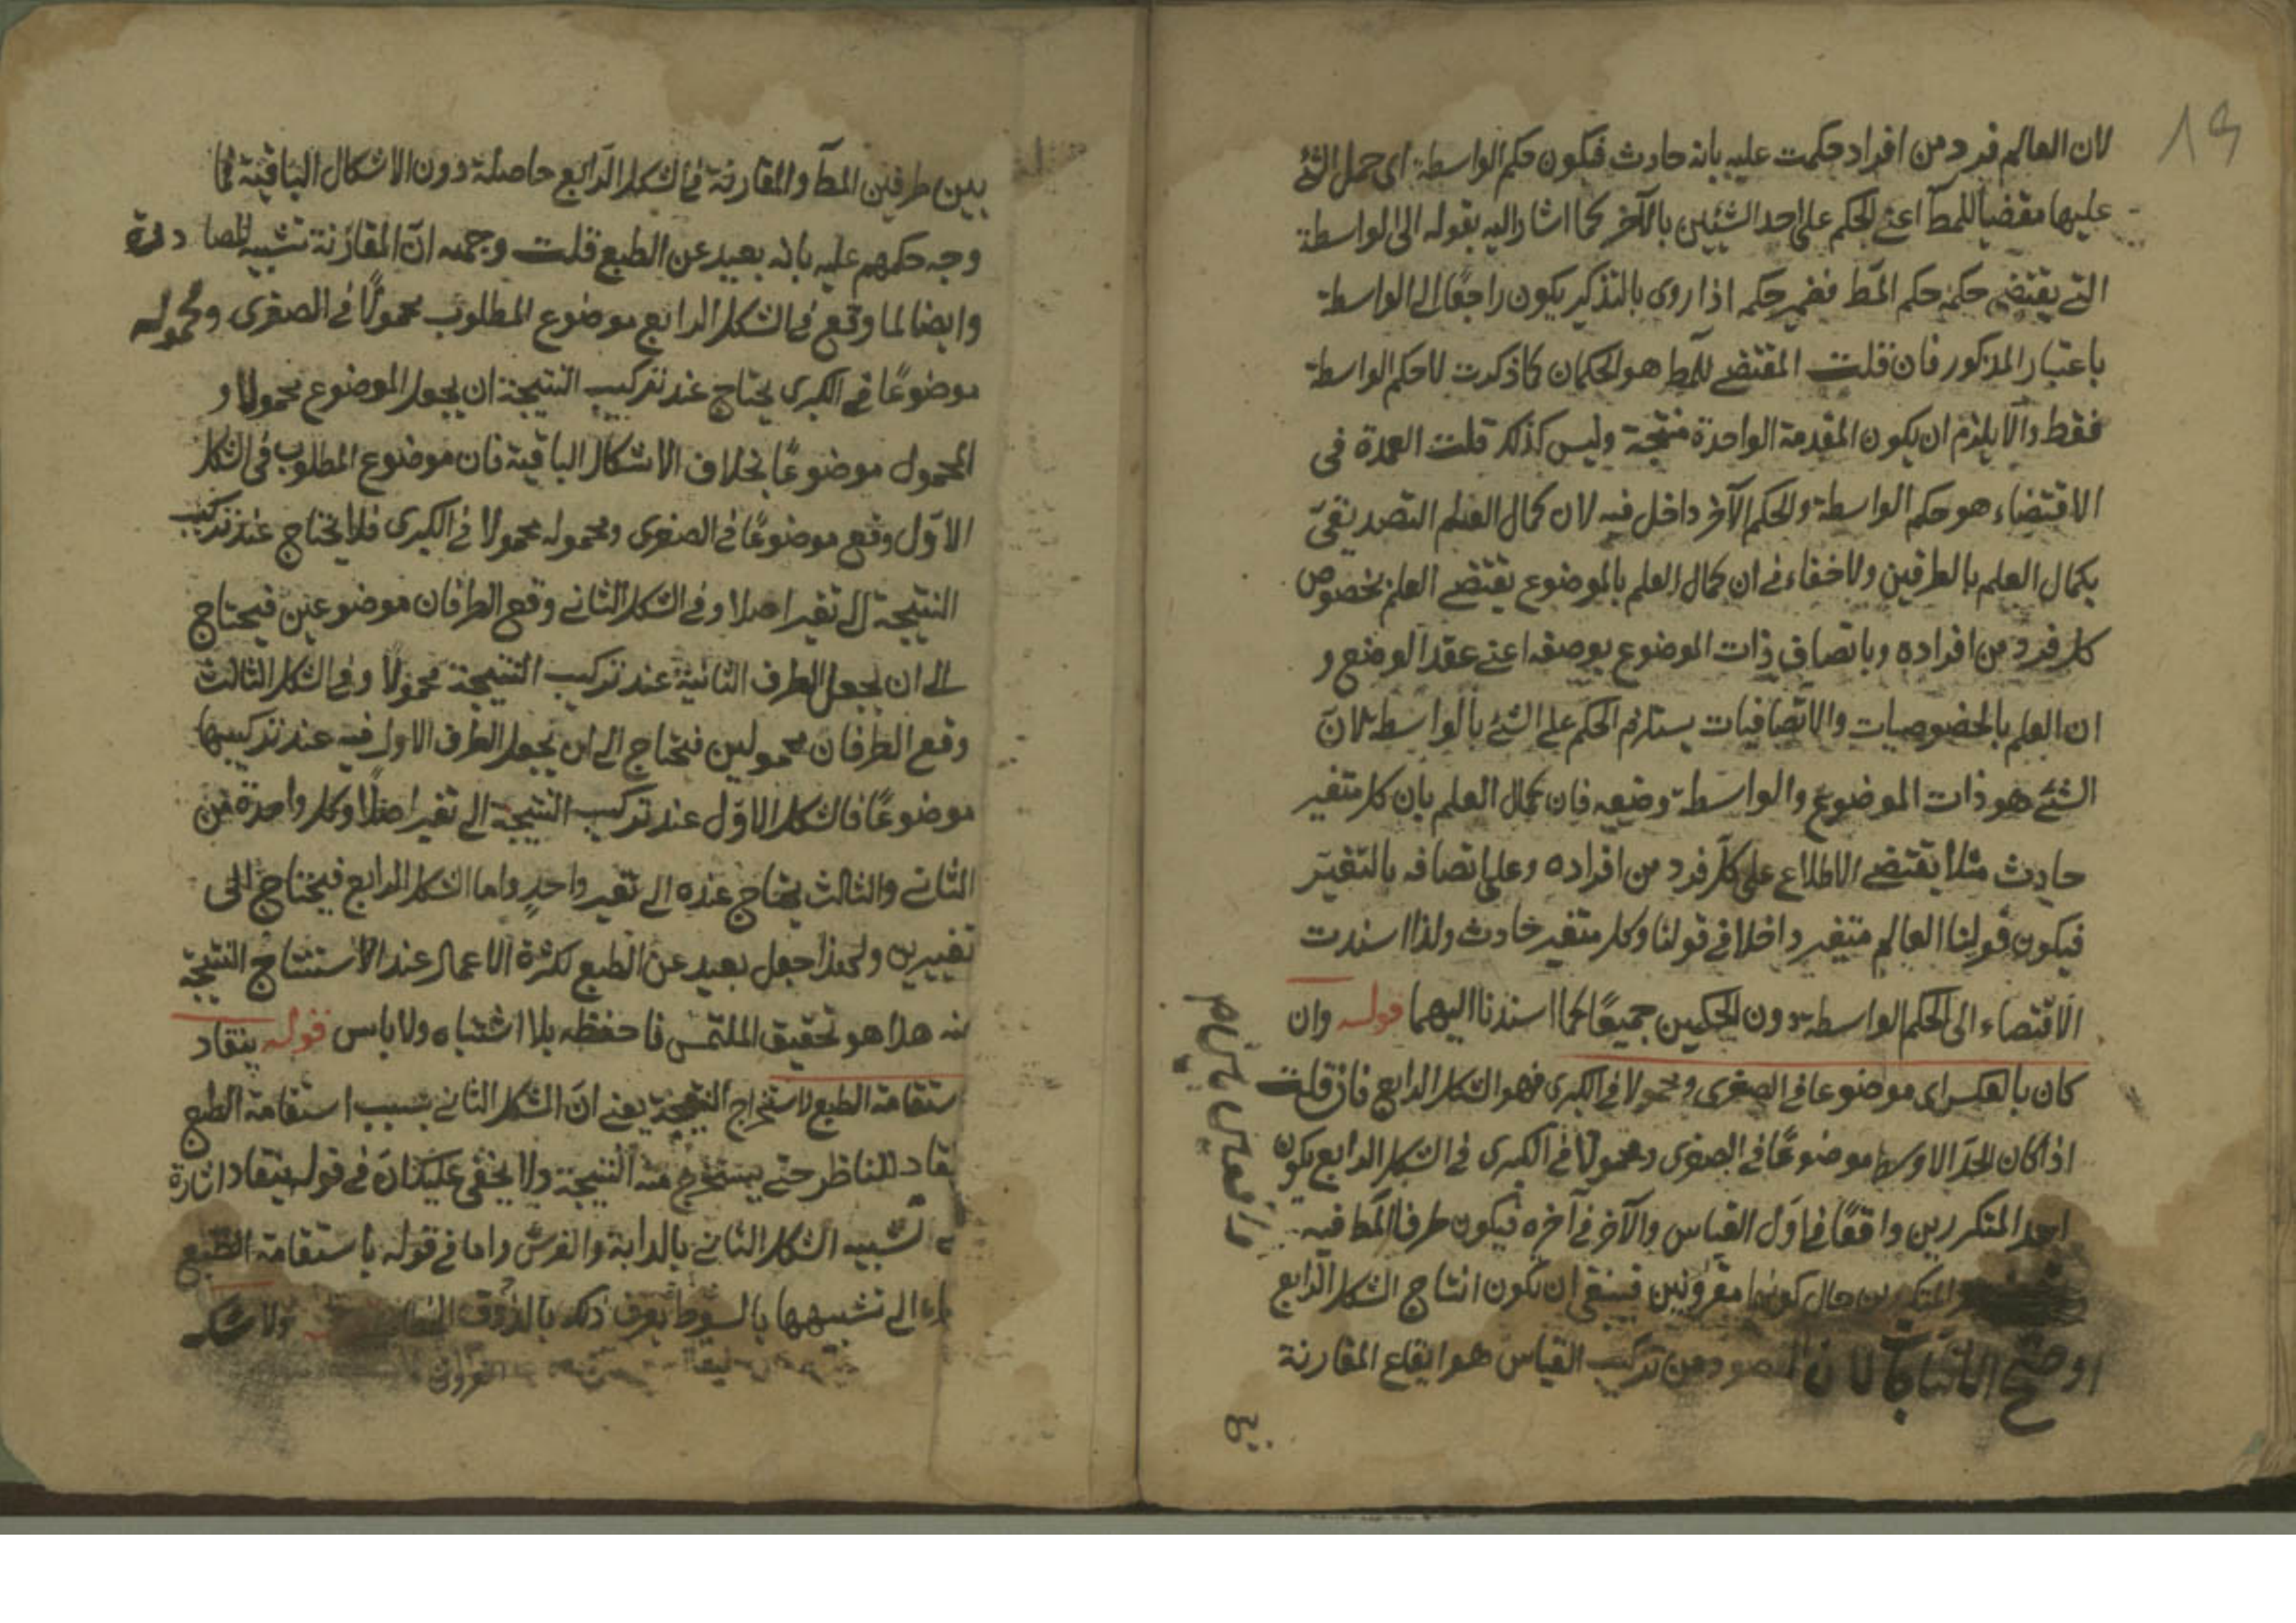 19
لان العالم فرد من افراد حكمت عليه بانه حادث فيكون حكم الواسطة اى حمل الشئ
عليها مقضيا للمط اعنى الحكم على احد الشيئين بالآخر كما اشار اليه بقوله الى الواسطة
التى يقتضى حكمه حكم المط فضمير حكمه اذا روى بالتذكير يكون راجعا الى الواسطة
باعتبار المذكور فان قلت المقتضى للمط هو الحكمان كما ذكرت لا حكم الواسطة
فقط والا يلزم ان يكون المقدمة الواحدة منتجة وليس كذلك قلت العمدة فى
الاقتضاء هو حكم الواسطة والحكم الآخر داخل فيه لان كمال العلم التصديقى
بكمال العلم بالطرفين ولا خفاء فى ان كمال العلم بالموضوع يقتضى العلم بخصوص
كل فرد من افراده وباتصاف ذات الموضوع بوصفه اعنى عقد الوضع و
ان العلم بالخصوصيات والاتصافيات يستلزم الحكم على الشئ بالواسطة لان
الشئ هو ذات الموضوع والواسطة وضيعه فان كمال العلم بان كل متغير
حادث مثلا يقتضى الاطلاع على كل فرد من افراده وعلى اتصافه بالتغير
فيكون قولنا العالم متغير داخلا فى قولنا وكل متغير حادث ولذا اسندت
الاقتضاء الى الحكم الواسطة دون الحكمين جميعًا كما اسندنا اليهما قوله وان
كان بالعكس اى موضوعا فى الصغرى ومحمولا فى الكبرى فهو الشكل الرابع فان قلت
اذا كان الحد الاوسط موضوعًا فى الصغرى ومحمولا فى الكبرى فى الشكل الرابع يكون
احد المتكررين واقعًا فى اول القياس والآخر فى آخره فيكون طرفا المط فيه
والمتكررين حال كونهما مقرونين فينبغى ان تكون انتاج الشكل الرابع
اوضح الانتاجات لان المقصود من تركيب القياس هو ايقاع المقارنة
بين
بين طرفين المط والمقارنة فى الشكل الرابع حاصلة دون الاشكال الباقية فما
وجه حكمهم عليه بانه بعيد عن الطبع قلت وجهه ان المقارنة تشبيه للمصادرة
وايضا لما وقع فى الشكل الرابع موضوع المطلوب محمولًا فى الصغرى ومحموله
موضوعًا فى الكبرى يحتاج عند تركيب النتيجة ان يجعل الموضوع محمولا و
المحمول موضوعًا بخلاف الاشكال الباقية فان موضوع المطلوب فى الشكل
الاول وقع موضوعًا فى الصغرى ومحموله محمولا فى الكبرى فلا يحتاج عند تركيب
النتيجة الى تغير اصلا وفى الشكل الثانى وقع الطرفان موضوعين فيحتاج
الى ان يجعل الطرف الثانية عند تركيب النتيجة محمولًا وفى الشكل الثالث
وقع الطرفان محمولين فيحتاج الى ان يجعل الطرف الاول فيه عند تركيبها
موضوعًا فالشكل الاول عند تركيب النتيجة الى تغير اصلًا وكل واحدة من
الثانى والثالث يحتاج عنده الى تغير واحدٍ واما الشكل الرابع فيحتاج الى
تغييرين ولهذا جعل بعيد عن الطبع لكثرة الاعمال عند الاستنتاج النتيجة
منه هذا هو تحقيق الملتمس فاحفظه بلا اشتباه ولا باس قوله ينقاد
ستقامة الطبع لاستخراج النتيجة يعنى ان الشكل الثانى بسبب استقامة الطبع
نقاد للناظر حتى يستخرج منه النتيجة ولا يخفى عليك ان فى قوله ينقاد اشارة
تشبيه الشكل الثانى بالدابة والفرس واما فى قوله باستقامة الطبع
الى تشبيهها بالسوط يعرف ذلك بالذوق ولا شك